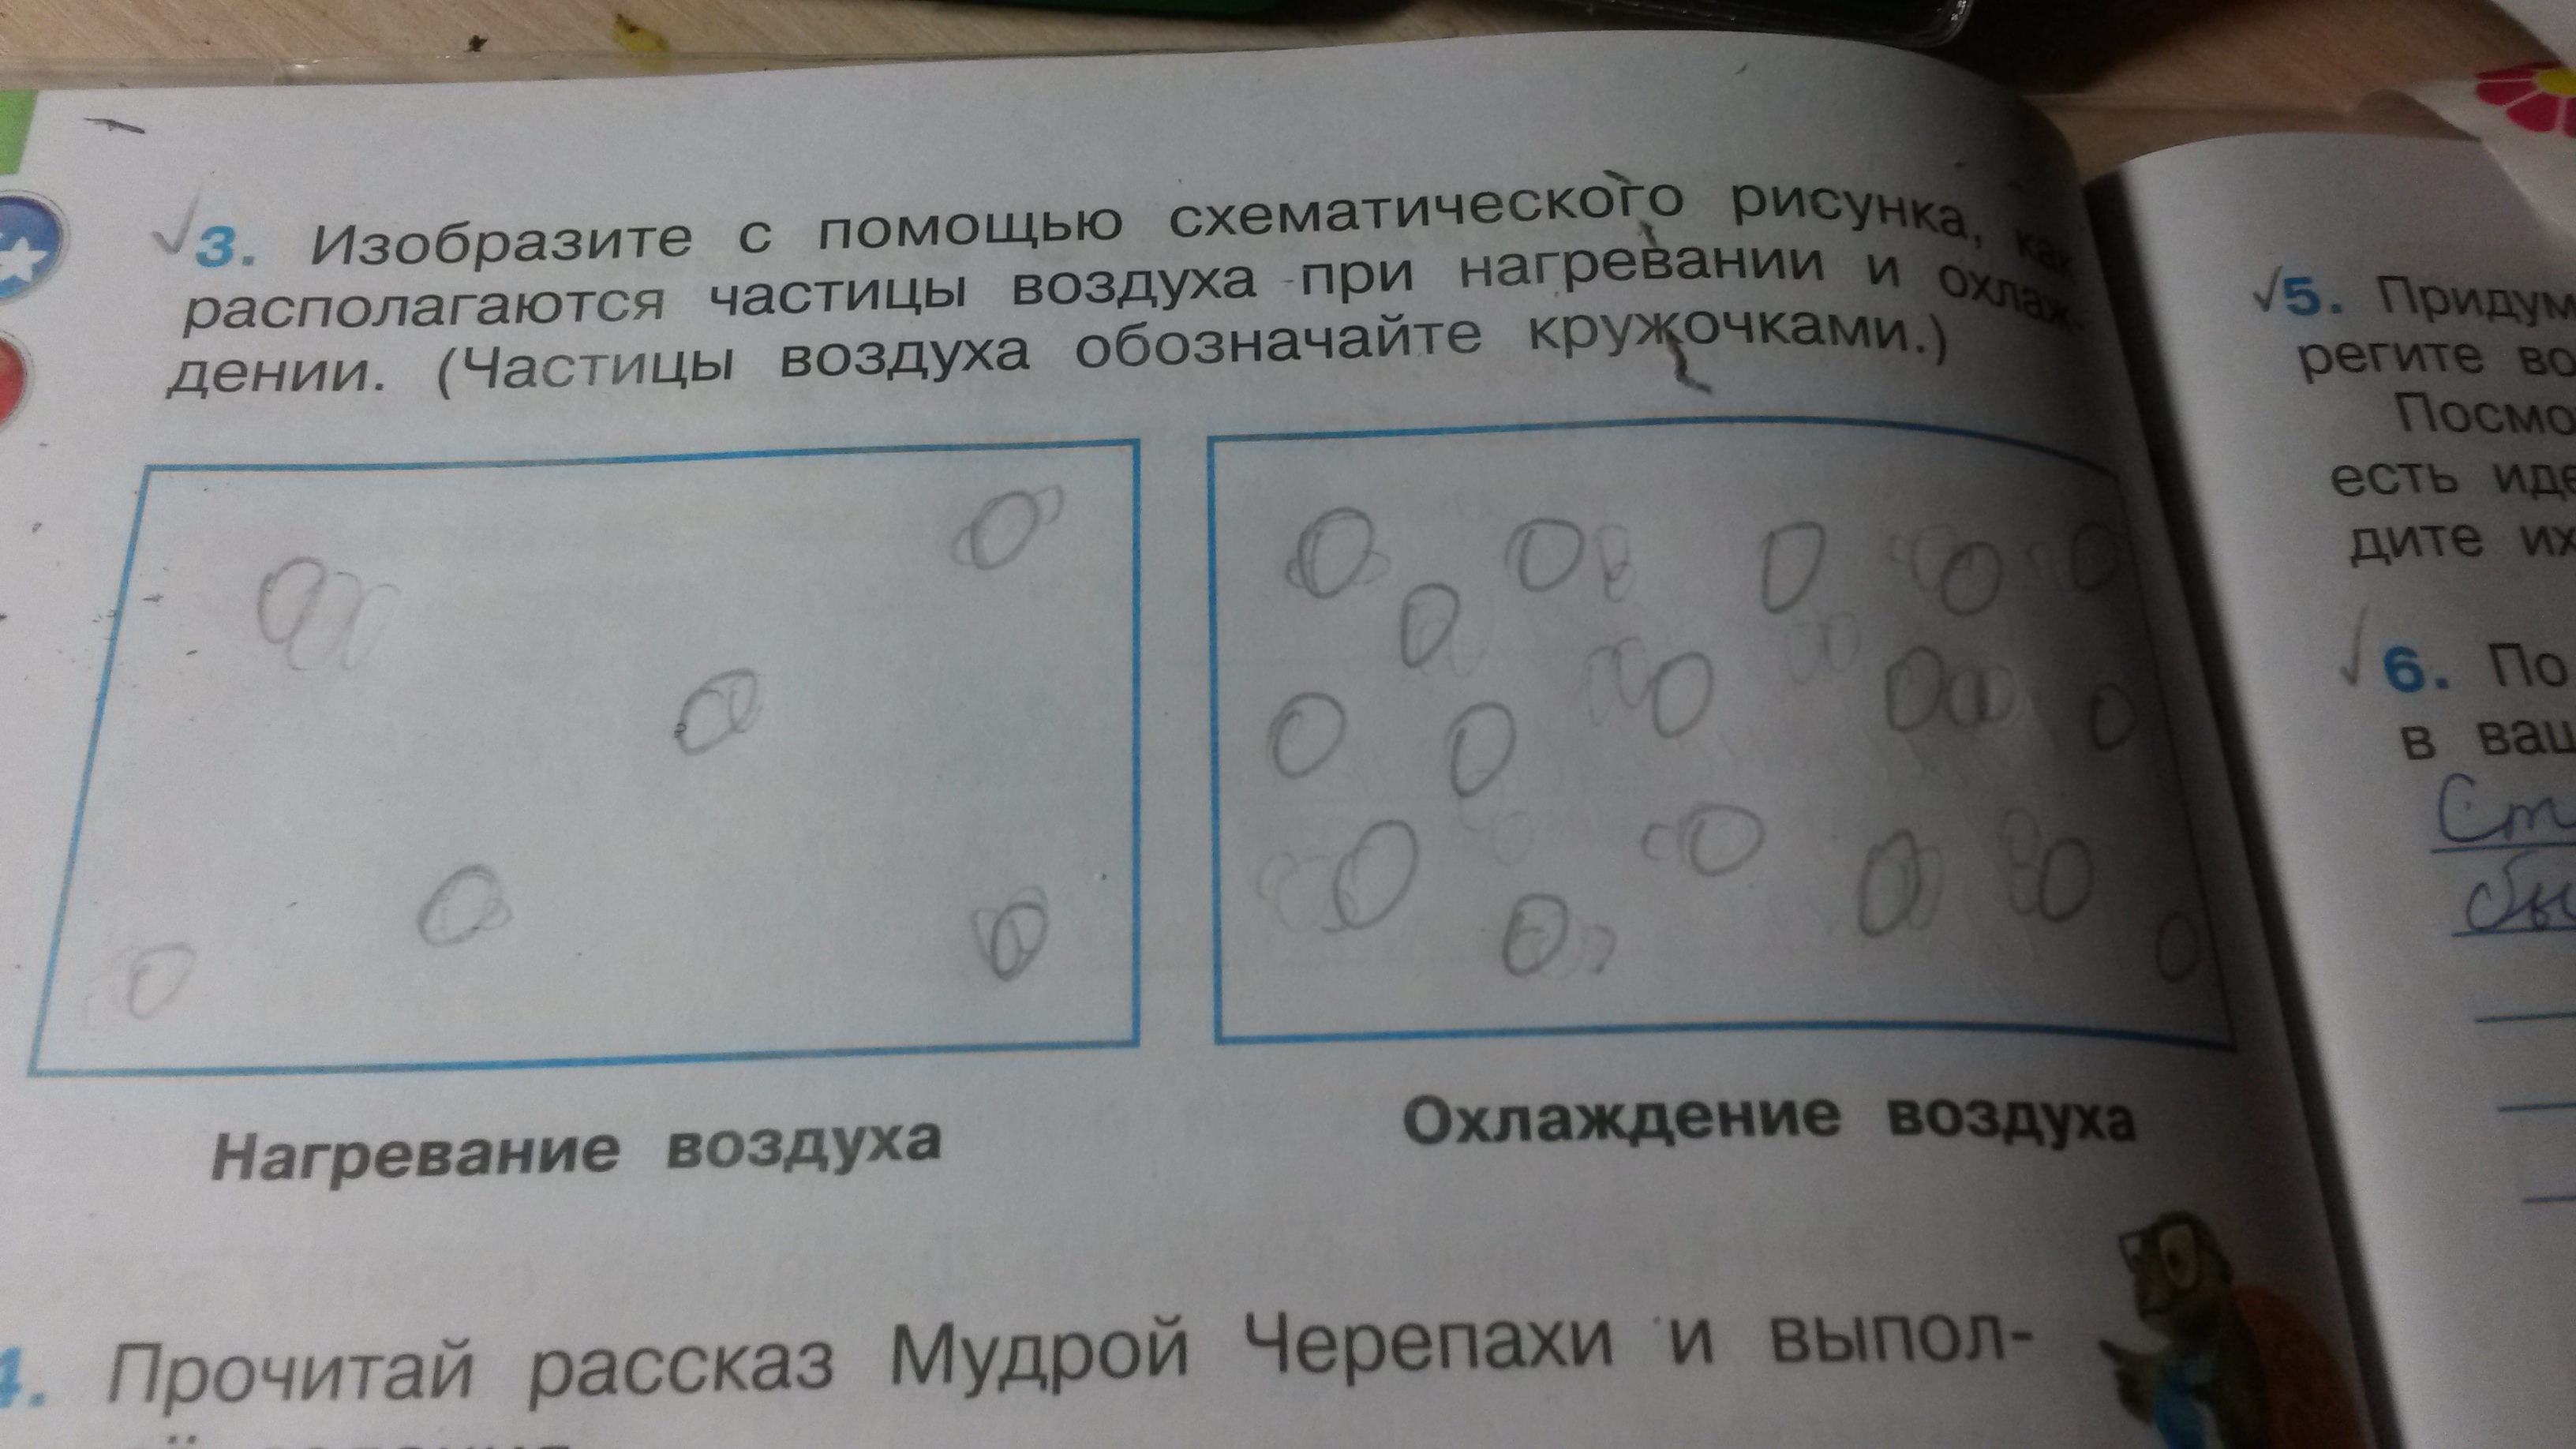 3. Изобразите с помощью схематического рисунка, как
располагаются частицы воздуха при нагревании и охлаж-
дении. (Частицы воздуха обозначайте кружочками.)
Нагревание воздуха
Охлаждение воздуха
4. Прочитай рассказ Мудрой Черепахи и выпол-
5. Придум
регите во
Посмо
есть иде
дите их
6. По
в ваш
Ст